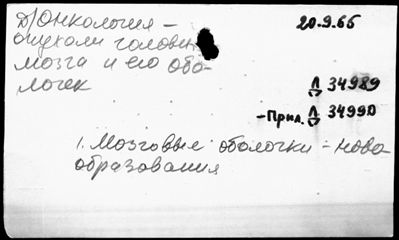 Д/Онкология -
опухоли головн
мозга и его обо-
лочек
20.9.65
Л 34989
-Прил. Л 34990
1. Мозговые оболочки - ново
образования